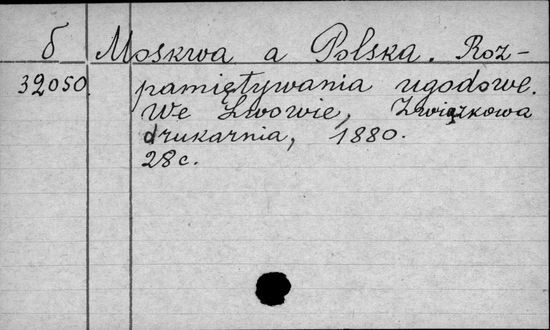 б Moskwa a Polska. Roz-
32050 pamiętywania ugodowe.
We Lwowie, Związkowa
drukarnia, 1880.
28 c.